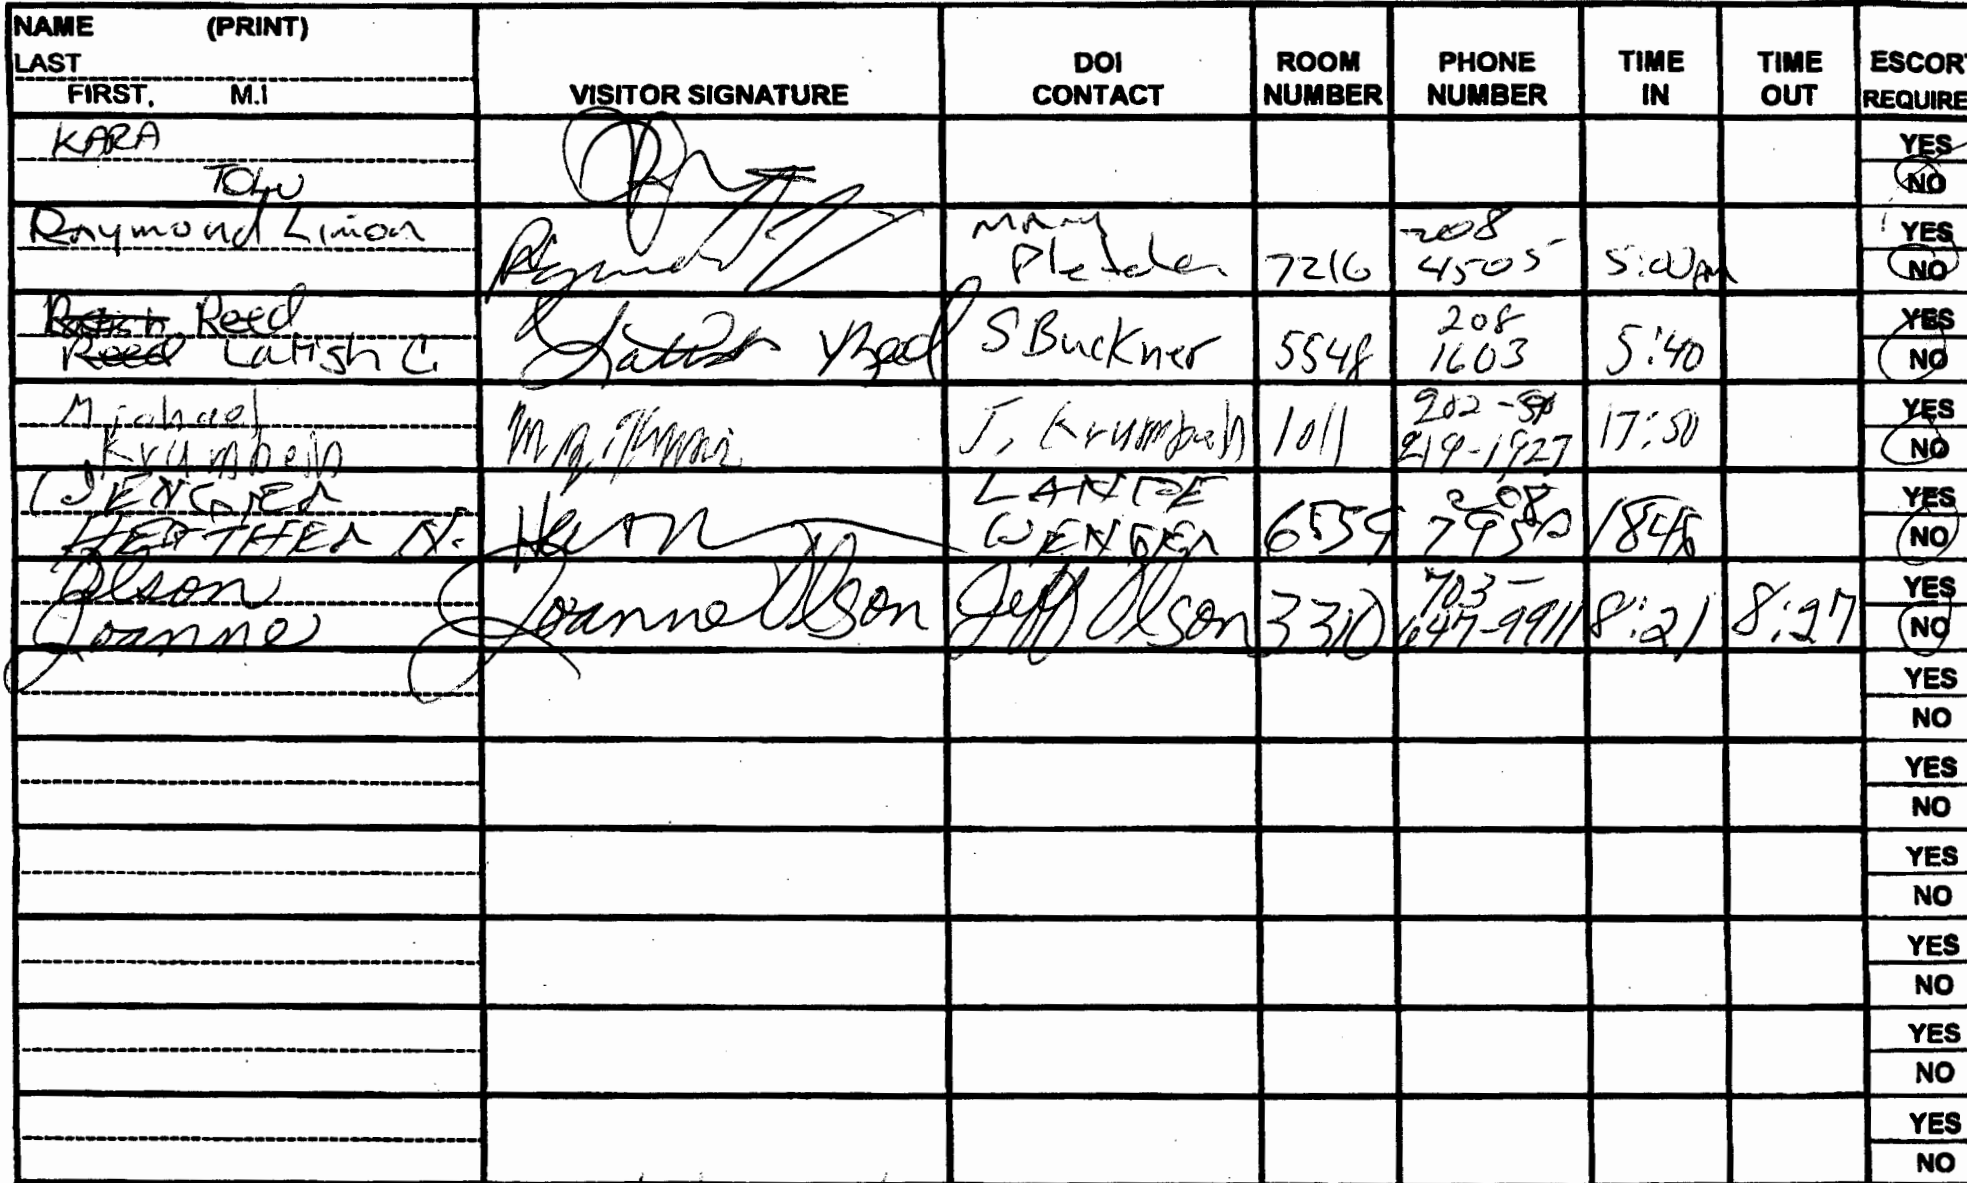 NAME (PRINT)
LAST
FIRST, M.I
VISITOR SIGNATURE
DOI
CONTACT
ROOM
NUMBER
PHONE
NUMBER
TIME
IN
TIME
OUT
ESCORT
REQUIRE
KARA
YES
NO
Raymond Limon
Mary
7216
208
4505
5:00PM
YES
NO
Reed
Reed Latish C.
Latish Reed
S Buckner
5548
208
1603
5:40
YES
NO
Michael
Krumbein
J. Krumbein
1011
202-
219-1927
17:50
YES
NO
WENGER
HEATHER N.
LANCE
WENGER
6559
208
1846
YES
NO
Olson
Joanne
Joanne Olson
Jeff Olson
3310
703-
647-9911
8:21
8:27
YES
NO
YES
NO
YES
NO
YES
NO
YES
NO
YES
NO
YES
NO